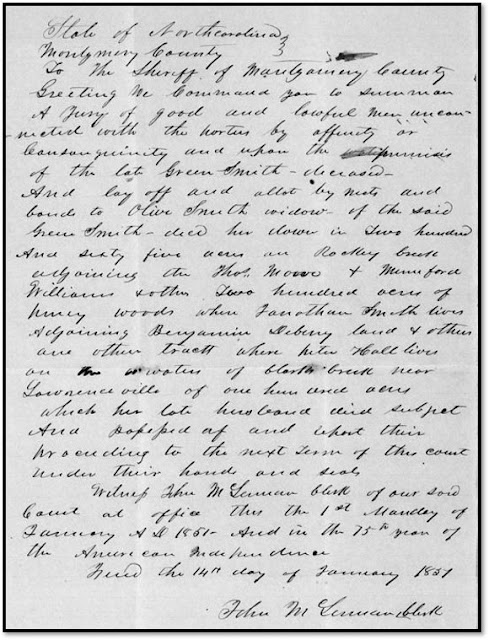 State of Northcarolina
Montgmery County
To the Sheriff of Montgomery County
Greeting We Command you to summon
A Jury of good and lawful men uncon-
-nected with the Parties by affinity or
Consanguinity and upon the
of the late Green Smith - deceased -
And lay off and allot by mets and
bonds to Olive Smith widow of the said
Green Smith - decd her dower in Two hundred
And sixty five acres on Rockey Creek
adjoining the Thos. Moore & Mumford
Williams & other Two hundred acres of
piney woods where Jonathan Smith lives
Adjoining Benjamin Deberry land & others
one other tract where Peter Hall lives
on waters of Clark Creek near
Lawrenceville of one hundred acres
which her late husband died
And possessed of and report their
proceeding to the next Term of this court
under their hands and seals
Witness John McLennan Clerk of our said
Court at office this the 1st Monday of
January A D 1851 - And in the 75th year of
the American Independence
the 14th day of January 1851
John McLennan Clerk